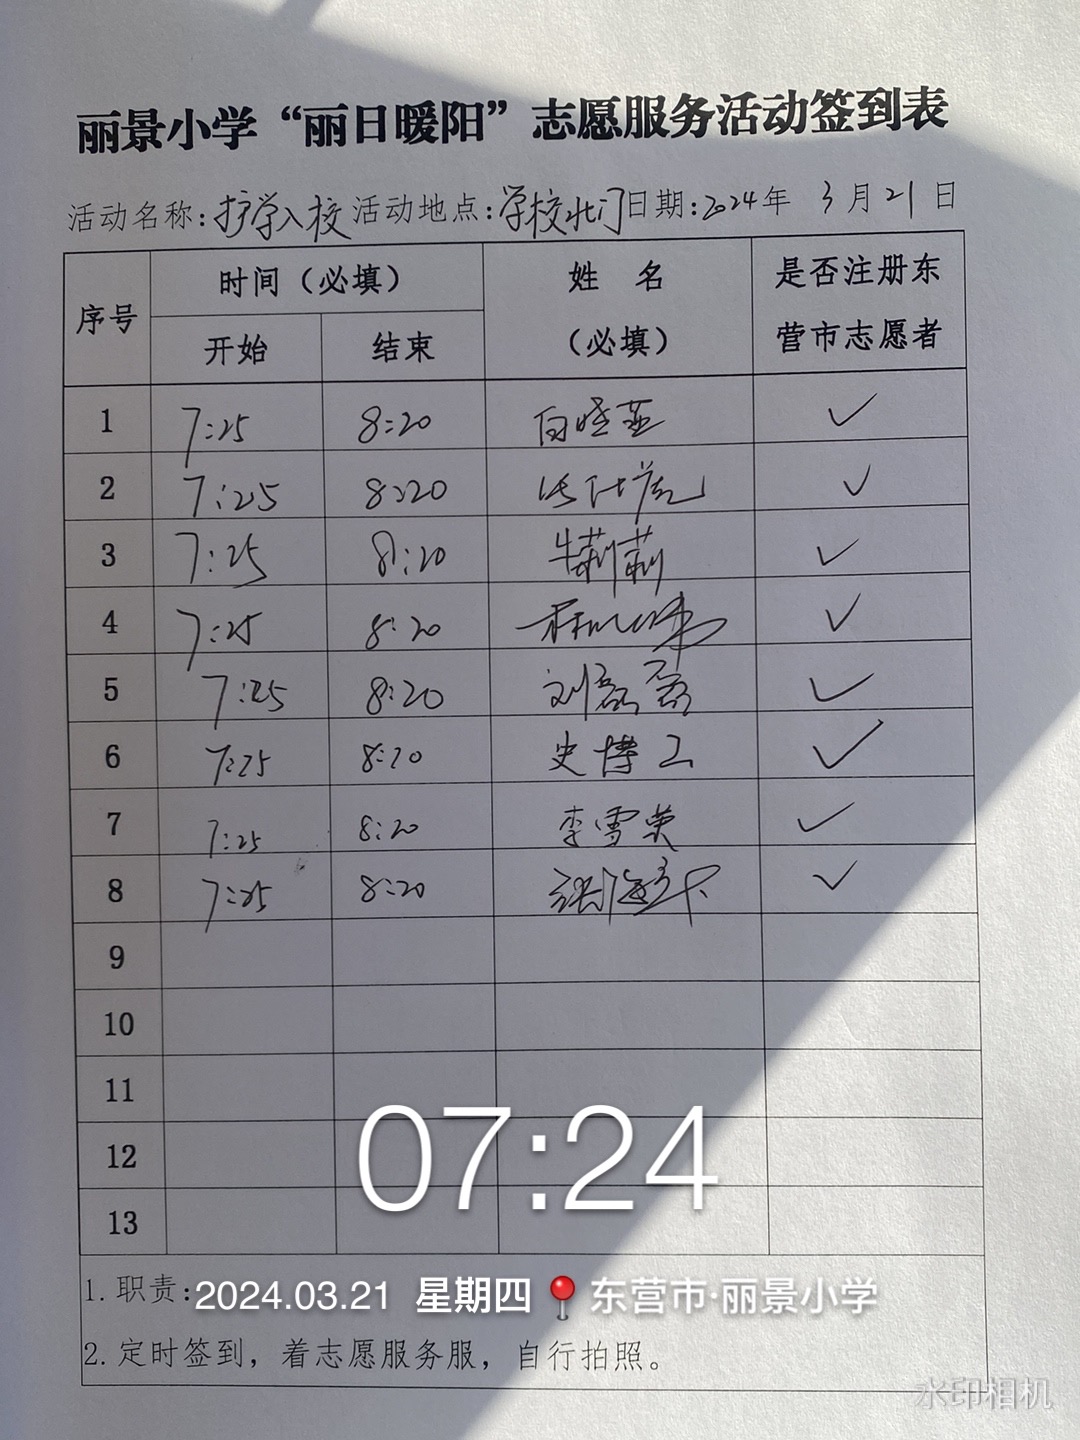 丽景小学“丽日暖阳”志愿服务活动签到表
活动名称:护学入校 活动地点:学校北门 日期:2024年 3月21日
序号 时间（必填） 姓 名（必填） 是否注册东营市志愿者
开始 结束
1 7:25 8:20 白 ✓
2 7:25 8:20 ✓
3 7:25 8:20 牛莉莉 ✓
4 7:25 8:20 ✓
5 7:25 8:20 刘磊磊 ✓
6 7:25 8:20 史博工 ✓
7 7:25 8:20 李雪英 ✓
8 7:25 8:20 张海 ✓
9
10
11
12
13
07:24
1.职责:
2024.03.21 星期四 东营市·丽景小学
2.定时签到，着志愿服务服，自行拍照。
水印相机